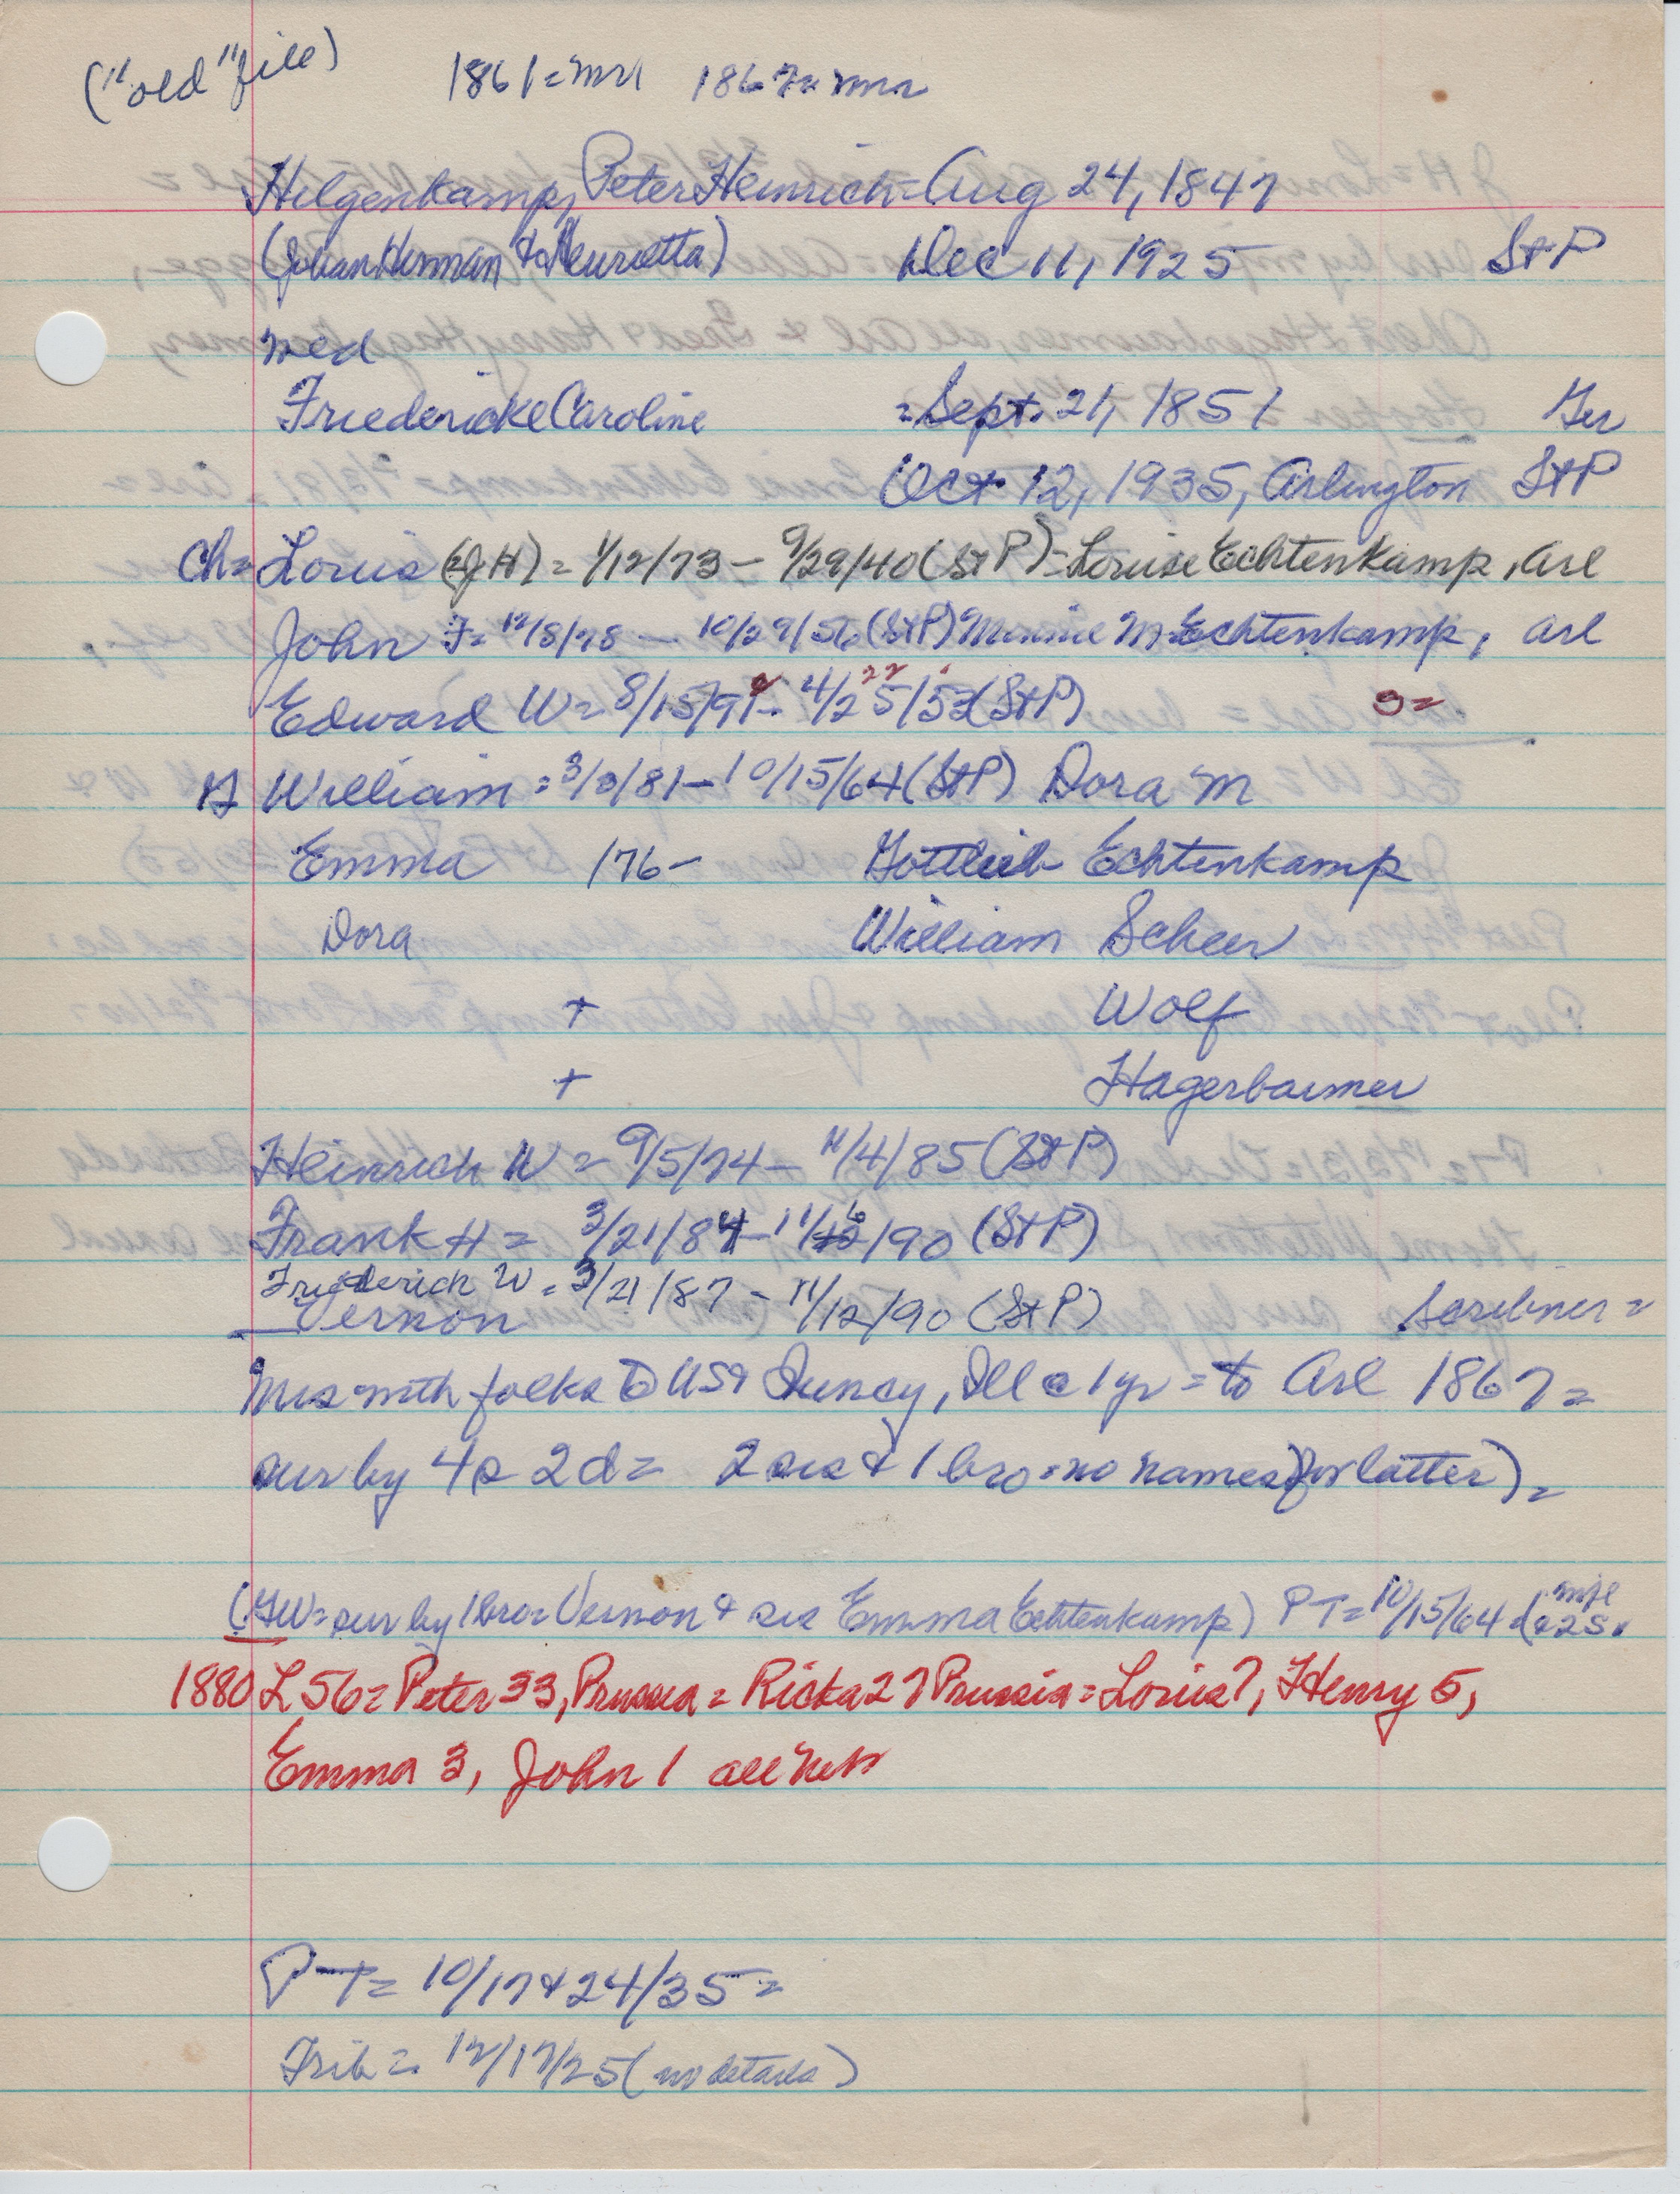 ("old" file) 1861= 1867=
Hilgenkamp, Peter Heinrich = Aug 24, 1847
(Johan Herman & Henrietta) Dec 11, 1925 St P
med
Friedericke Caroline = Sept. 21, 1851 Ger
Oct 12, 1935, Arlington St P
Ch= Louis (GJH) = 1/12/73 - 9/29/40 (St P) - Louise Echtenkamp, Arl
John F= 12/8/78 - 10/29/56 (St P) Minnie M Echtenkamp, Arl
Edward W= 8/15/91 - 4/25/53 (St P)
William = 3/3/81 - 10/15/64 (St P) Dora M
Emma /76- Gottlieb Echtenkamp
Dora William Scheer
+ Wolf
+ Hagerbaumer
Heinrich W = 9/5/74 - 11/4/85 (St P)
Frank H = 3/21/84 - 11/6/90 (St P)
Friederich W = 3/21/87 - 11/12/90 (St P)
Vernon Scribner =
with folks to USA Quincy, Ill c 1 yr = to Arl 1867 =
sur by 4s 2d = 2 sis & 1 bro = no names (for latter) =
(GW= sur by 1 bro= Vernon & sis Emma Echtenkamp) PT= 10/15/64 =
1880 L 56= Peter 33, Prussia = Ricka 27 Prussia = Louis 7, Henry 5,
Emma 3, John 1 all Neb
PT= 10/17 & 24/35 =
Trib = 12/17/25 (no details)